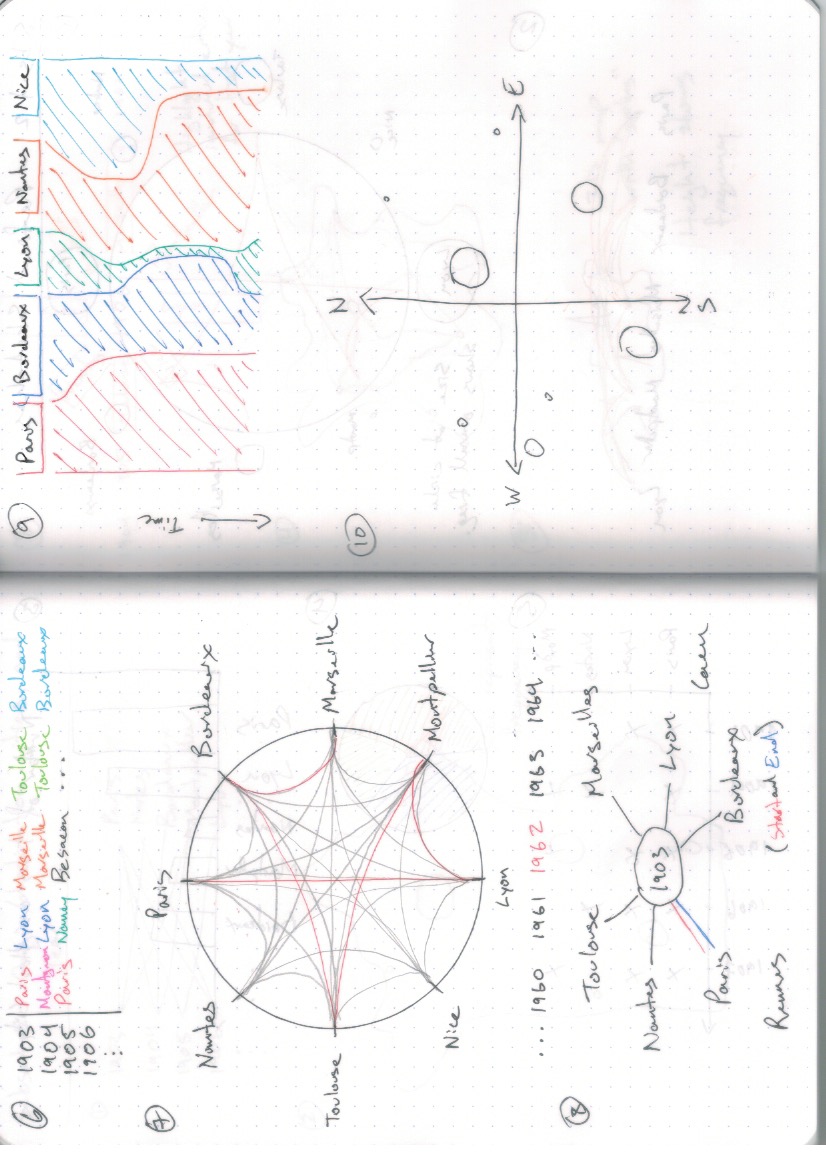 6
1903 Paris Lyon Marseille Toulouse Bordeaux
1904 Lyon Marseille Toulouse Bordeaux
1905 Paris Nancy ...
1906
:
7
Paris
Nantes
Bordeaux
Toulouse
Marseille
Nice
Lyon
... 1960 1961 1962 1963 1964 ...
8
Toulouse
Marseilles
Nantes
1903
Lyon
Paris
Caen
Bordeaux
Rennes
(Start and End)
9
Paris Bordeaux Lyon Nantes Nice
Time
10
N
W
E
S